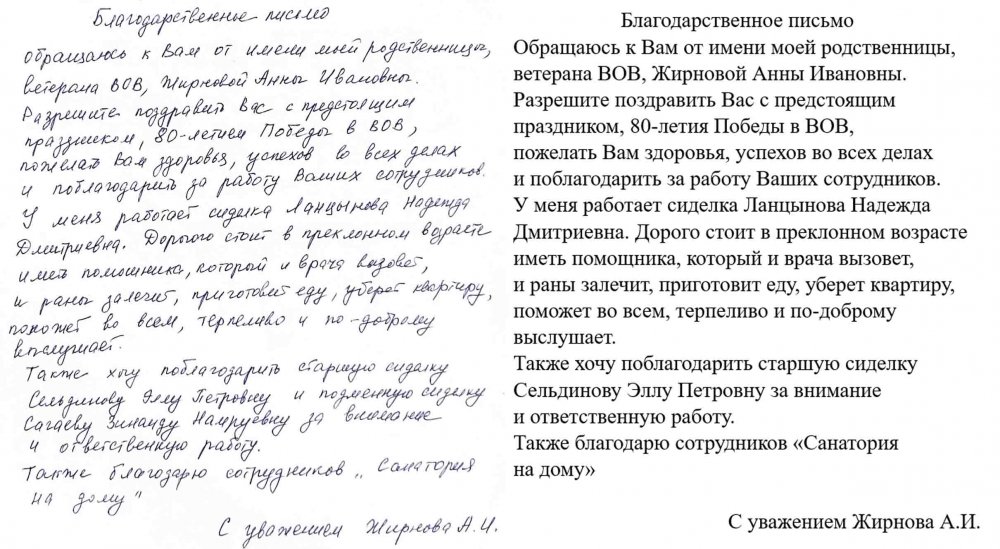 Благодарственные письмо
обращаюсь к Вам от имени моей родственницы,
ветерана ВОВ, Жирновой Анны Ивановны.
Разрешите поздравить Вас с предстоящим
праздником, 80-летием Победы в ВОВ,
пожелать Вам здоровья, успехов во всех делах
и поблагодарить за работу Ваших сотрудников.
У меня работает сиделка Ланцынова Надежда
Дмитриевна. Дорогого стоит в преклонном возрасте
иметь помошника, который и врача вызовет,
и раны залечит, приготовит еду, уберет квартиру,
поможет во всем, терпеливо и по-доброму
выслушает.
Также хочу поблагодарить старшую сиделку
Сельдинову Эллу Петровну и подменную сиделку
Сагаеву Зинаиду Намруевну за внимание
и ответственную работу.
Также благодарю сотрудников „Санатория
на дому"
С уважением Жирнова А.И.
Благодарственное письмо
Обращаюсь к Вам от имени моей родственницы,
ветерана ВОВ, Жирновой Анны Ивановны.
Разрешите поздравить Вас с предстоящим
праздником, 80-летия Победы в ВОВ,
пожелать Вам здоровья, успехов во всех делах
и поблагодарить за работу Ваших сотрудников.
У меня работает сиделка Ланцынова Надежда
Дмитриевна. Дорого стоит в преклонном возрасте
иметь помощника, который и врача вызовет,
и раны залечит, приготовит еду, уберет квартиру,
поможет во всем, терпеливо и по-доброму
выслушает.
Также хочу поблагодарить старшую сиделку
Сельдинову Эллу Петровну за внимание
и ответственную работу.
Также благодарю сотрудников «Санатория
на дому»
С уважением Жирнова А.И.